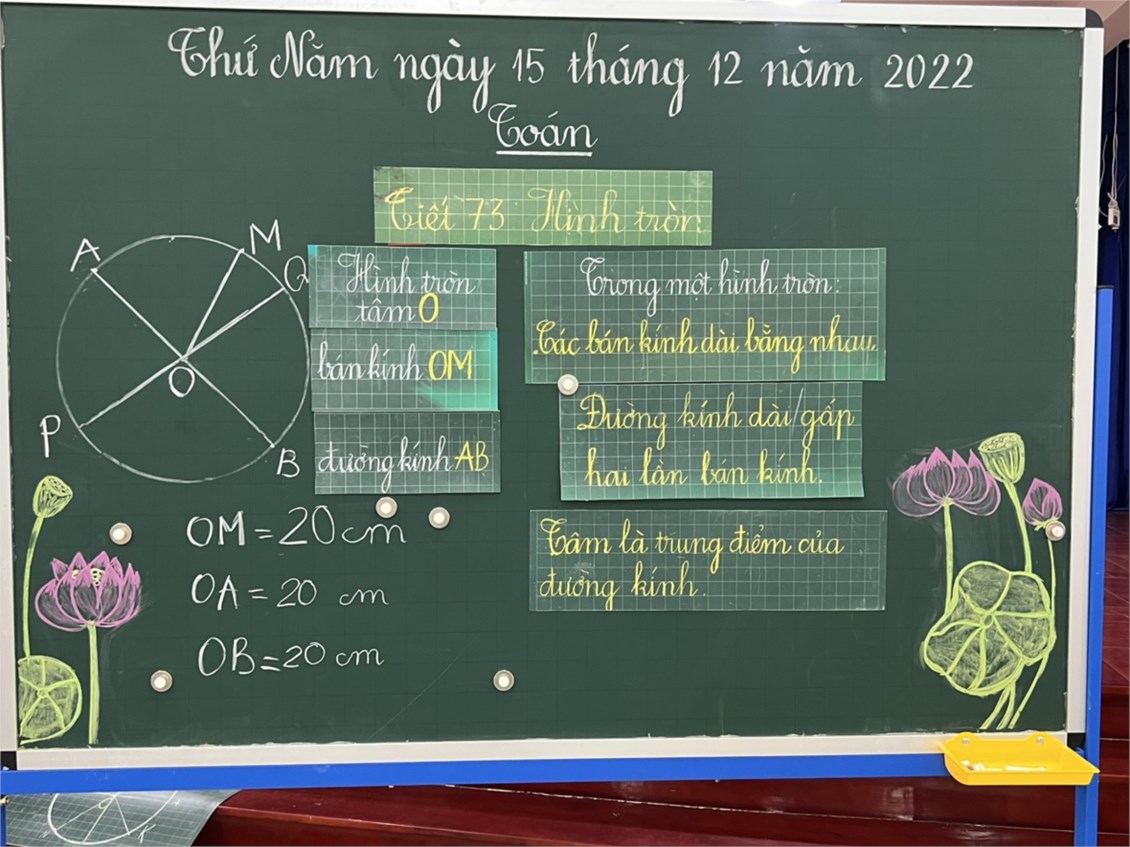 Thứ Năm ngày 15 tháng 12 năm 2022
Toán
Tiết 73 Hình tròn
A
M
Q
O
P
B
Hình tròn
tâm O
bán kính OM
đường kính AB
Trong một hình tròn:
Các bán kính dài bằng nhau.
Đường kính dài gấp
hai lần bán kính.
Tâm là trung điểm của
đường kính.
OM = 20 cm
OA = 20 cm
OB = 20 cm